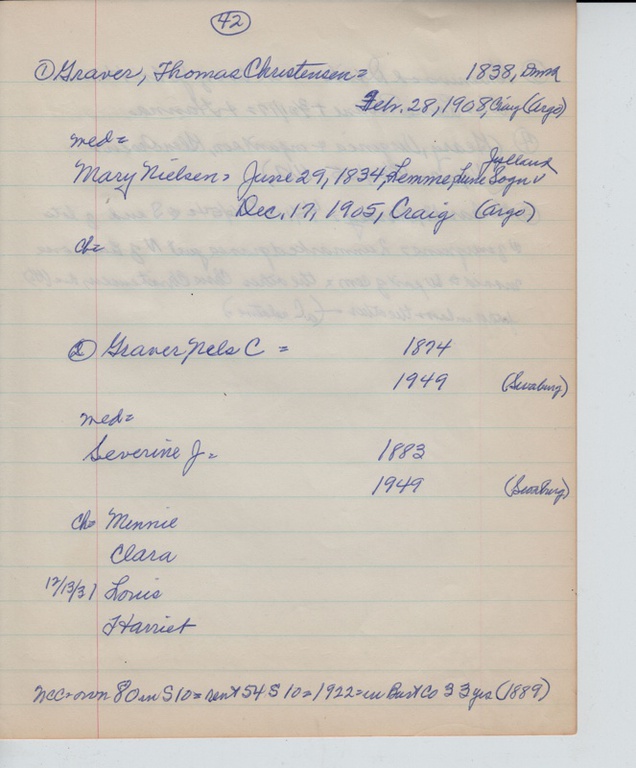 42
① Graver, Thomas Christensen = 1838, Dnmk
Febr. 28, 1908, Craig (Argo)
med =
Jylland
Mary Nielsen = June 29, 1834, Lemme, Sogn
Dec. 17, 1905, Craig (Argo)
ch =
② Graver Nels C = 1874
1949 (Swaburg)
med =
Severine J = 1883
1949 (Swaburg)
ch = Minnie
Clara
12/13/31 Louis
Harriet
NCC = own 80 in S 10 = rent 54 S 10 = 1922 = in Burt Co 33 yrs (1889)